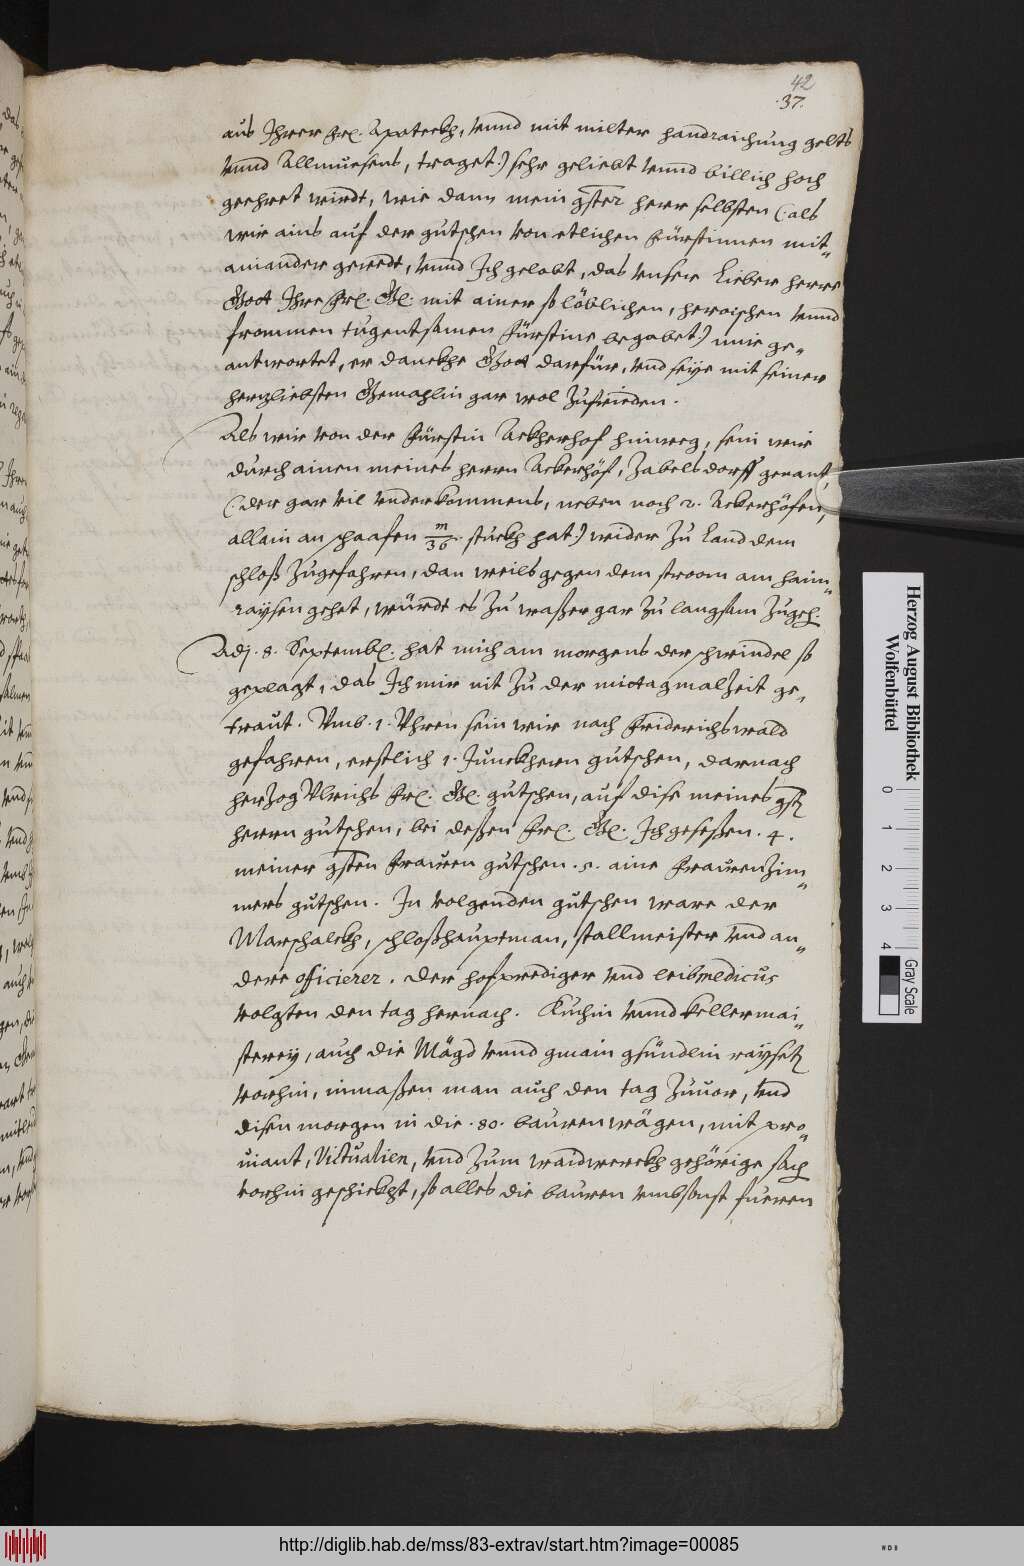 42
.37.
aus Ihrer frl. Apoteckh, vnnd mit milter handraichung gelts
vnnd Allmuesens, traget:) sehr geliebt vnnd billich hoch
geehret wirdt, wie dann mein gster herr selbsten (:als
wir ains auf der gutschen von etlichen Fürstinnen mit=
ainander geredt, vnnd Ich gelobt, das vnser Lieber herr
Gott Ihre Frl. Gl. mit ainer so löblichen, heroischen vnnd
frommen tugentsamen Fürstine begabet) mir ge=
antwortet, er danckhe Gott darfür, vnd seÿe mit seiner
herzliebsten Gemahlin gar wol zufrieden.
Als wir von der Fürstin Ackherhof hinweg, sein wir
durch ainen meines herrn Ackerhöf, Zabelsdorff genant,
(:der gar vil vnderkommens, neben noch 2. Ackerhöfen,
allain an schaafen m/36. stuckh hat) wider zu Land dem
schloß zugefahren, dan weils gegen dem stroom am haim=
raysen gehet, würdt es zu waßer gar zu langsam zugeh.
Adj. 8. Septembr. hat mich am morgens der schwindel so
geplagt, das Ich mir nit zu der mittagmalzeit ge=
traut. Vmb .1. Vhren sein wir nach Friderichswald
gefahren, erstlich 1. Junckhern gutschen, darnach
herzog Vlrichs Frl. Gl. gutschen, auf dise meines gst
herrn gutschen, bei deßen Frl. Gl. Ich geseßen. 4.
meiner gsten Frawen gutschen .5. aine Frawenzim=
mers gutschen. In volgenden gutschen ware der
Marschalckh, schloßhauptman, stallmeister vnd an=
dere officierer. Der hofprediger vnd leibmedicus
volgten den tag hernach. Kuchin vnnd kellermai=
sterey, auch die Mägd vnnd gmain gsündlin rayset
vorhin, inmaßen man auch den tag zuuor, vnd
disen morgen in die .80. baurenwägen, mit pro=
uiant, Victualien, vnd zum waidwerckh gehörige sach
vorhin geschickht, so alles die bauren vmbsonst fueren
Herzog August Bibliothek
Wolfenbüttel
0 1 2 3 4
Gray Scale
http://diglib.hab.de/mss/83-extrav/start.htm?image=00085